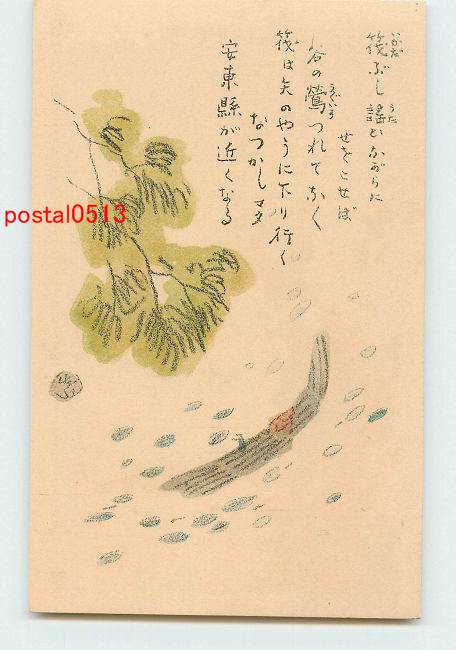 筏ぶし謡ひながらに
せをこせば
谷の鶯つれてなく
筏は矢のやうに下り行く
なつかしマタ
安東縣が近くなる
いかだ
うた
うぐいす
postal0513